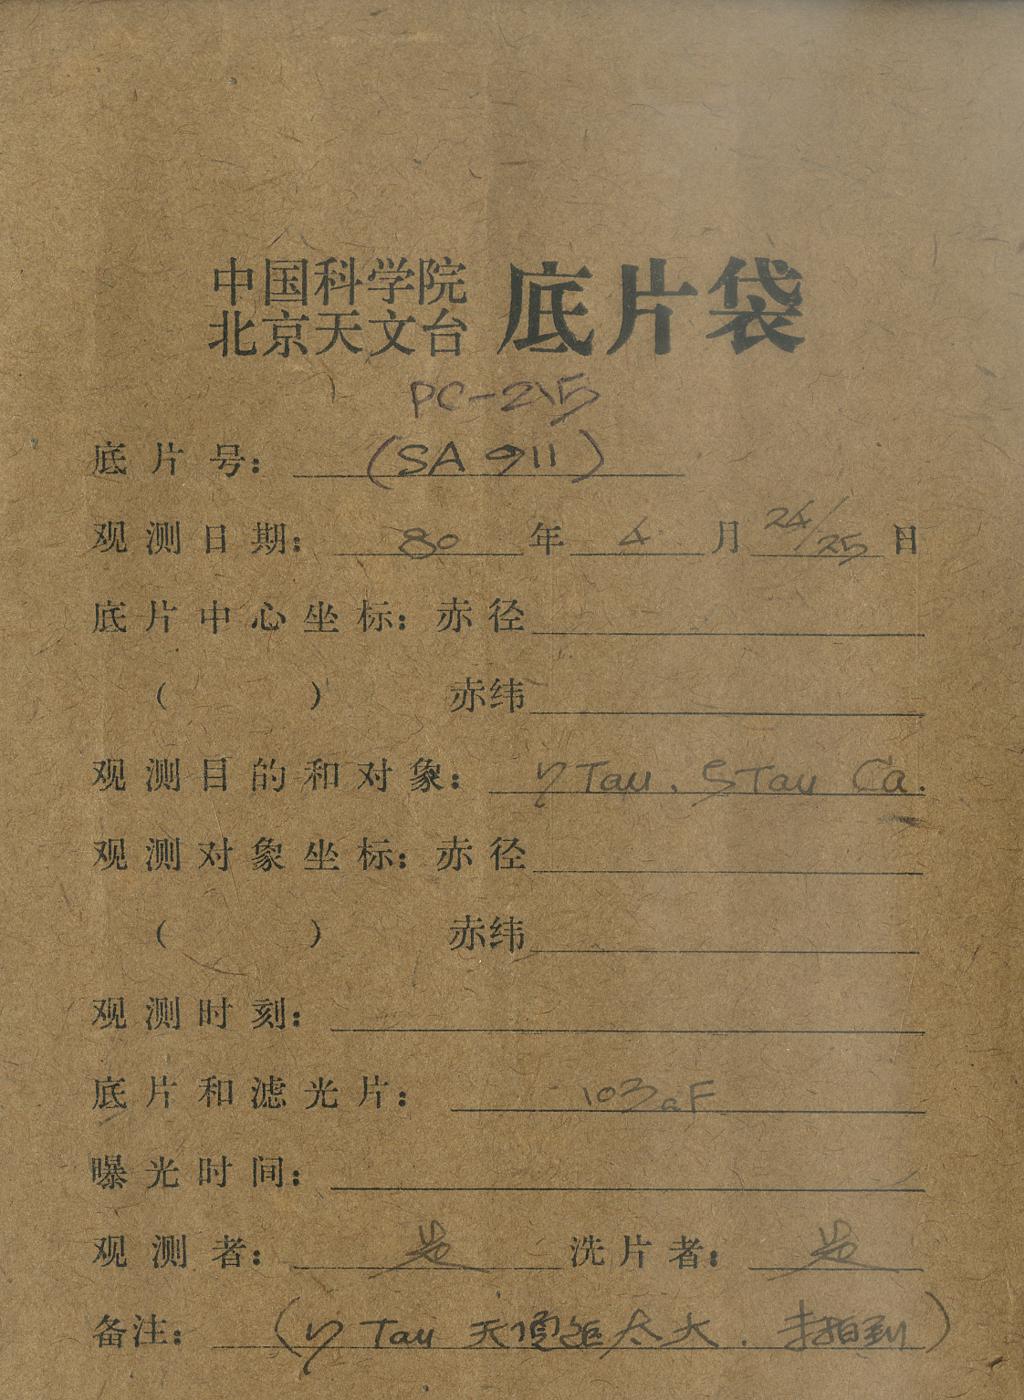 中国科学院
北京天文台 底片袋
PC-215
底片号: (SA 911)
观测日期: 80 年 4 月 24/25 日
底片中心坐标: 赤径
( ) 赤纬
观测目的和对象: η Tau. ζ Tau Ca.
观测对象坐标: 赤径
( ) 赤纬
观测时刻:
底片和滤光片: 103aF
曝光时间:
观测者: 洗片者:
备注: (η Tau 天顶距太大. 拍到)